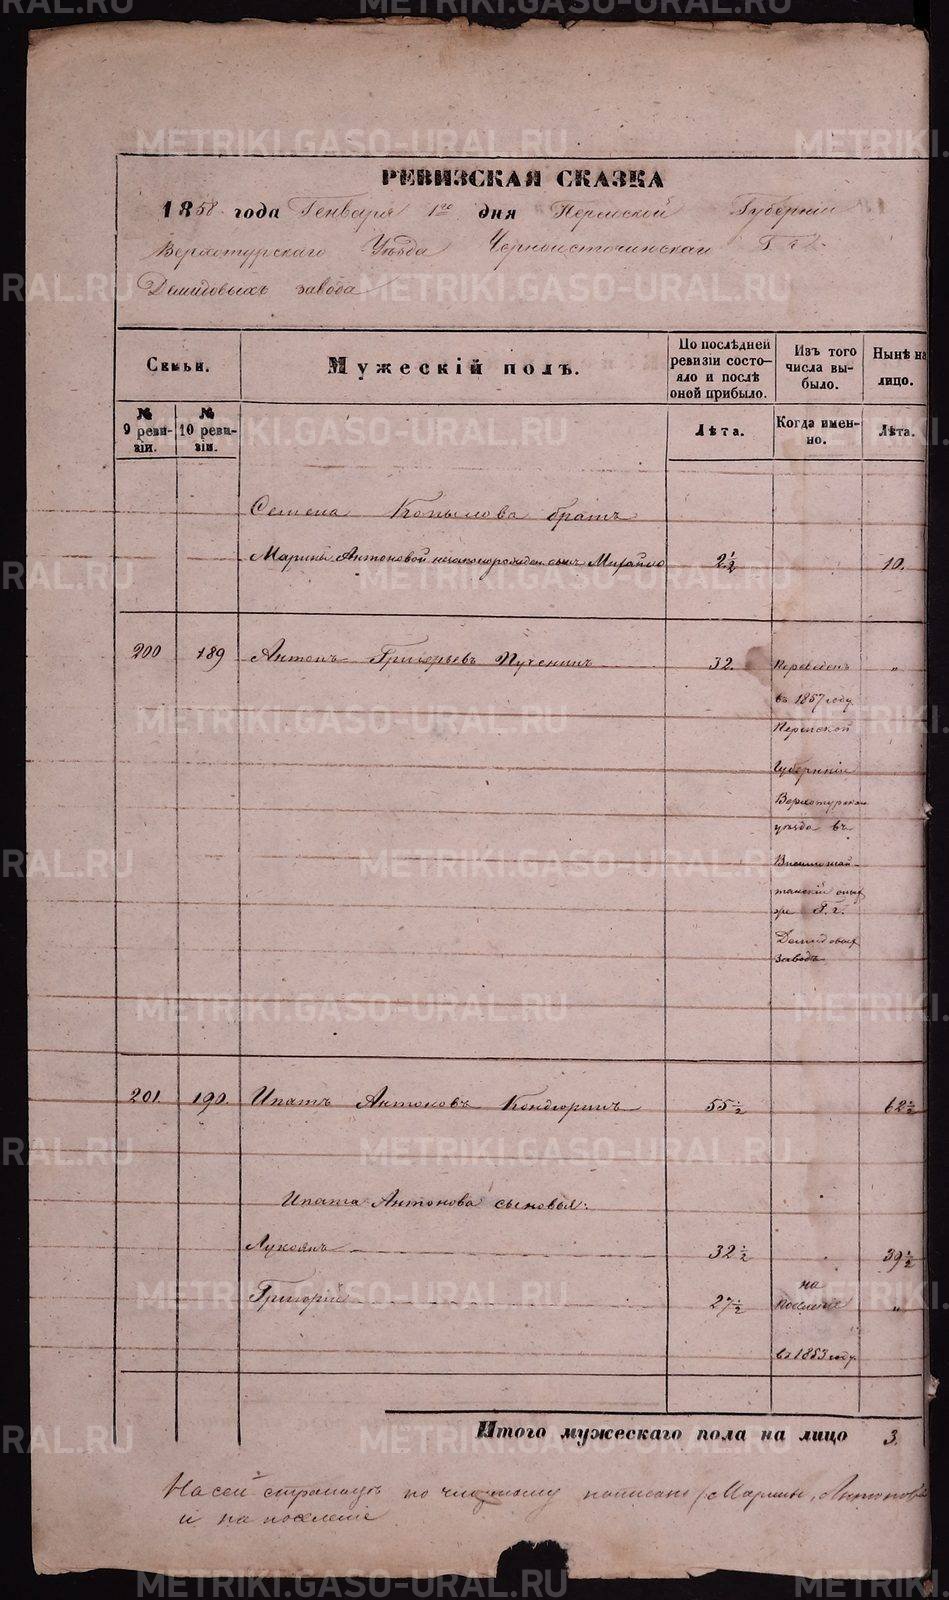 РЕВИЗСКАЯ СКАЗКА
1858 года Генваря 1го дня Пермской Губерніи
Верхотурскаго Уѣзда Черноисточинскаго Гг
Демидовыхъ завода
Семьи.
Мужескій полъ.
По послѣдней ревизіи состо-
яло и послѣ оной прибыло.
Изъ того числа вы-
было.
Нынѣ на лицо.
№ 9 реви-
зіи.
№ 10 реви-
зіи.
Лѣта.
Когда имен-
но.
Лѣта.
Семена Копылова братъ
Марины Антоновой незаконорожден. сынъ Михайло 2 1/2 10.
200 189 Антонъ Григорьевъ 32. Переведенъ „
въ 1857 году
Пермской
Губерніи
Верхотурскаго
уѣзда въ
Висимошай-
танскій
Гг.
Демидовыхъ
заводъ
201. 190. Ипатъ Антоновъ Кондюринъ 55 1/2 62 1/2
Ипата Антонова сыновья:
Лукоянъ 32 1/2 39 1/2
Григорій 27 1/2 на поселеніе „
въ 1853 году
Итого мужескаго пола на лицо 3.
На сей страницѣ по чищенному написано Марины Антоновой
и на поселеніе
METRIKI.GASO-URAL.RU